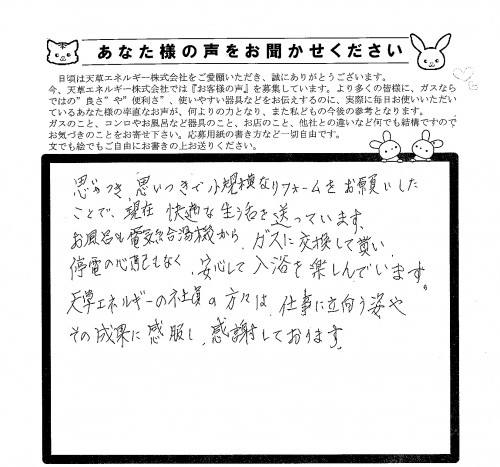 あなた様の声をお聞かせください
日頃は天草エネルギー株式会社をご愛願いただき、誠にありがとうございます。
今、天草エネルギー株式会社では『お客様の声』を募集しています。より多くの皆様に、ガスなら
ではの”良さ”や”便利さ”、使いやすい器具などをお伝えするのに、実際に毎日お使いいただい
ているあなた様の率直なお声が、何よりの力となり、また私どもの今後の参考となります。
ガスのこと、コンロやお風呂など器具のこと、お店のこと、他社との違いなど何でも結構ですので
お気づきのことをお寄せ下さい。応募用紙の書き方など一切自由です。
文でも絵でもご自由にお書きの上お送りください。
思いつき、思いつきで小規模なリフォームをお願いした
ことで、現在快適な生活を送っています。
お風呂も電気給湯機から、ガスに交換して貰い、
停電の心配もなく、安心して入浴を楽しんでいます。
天草エネルギーの社員の方々は、仕事に立向う姿や
その成果に感服し、感謝しております。